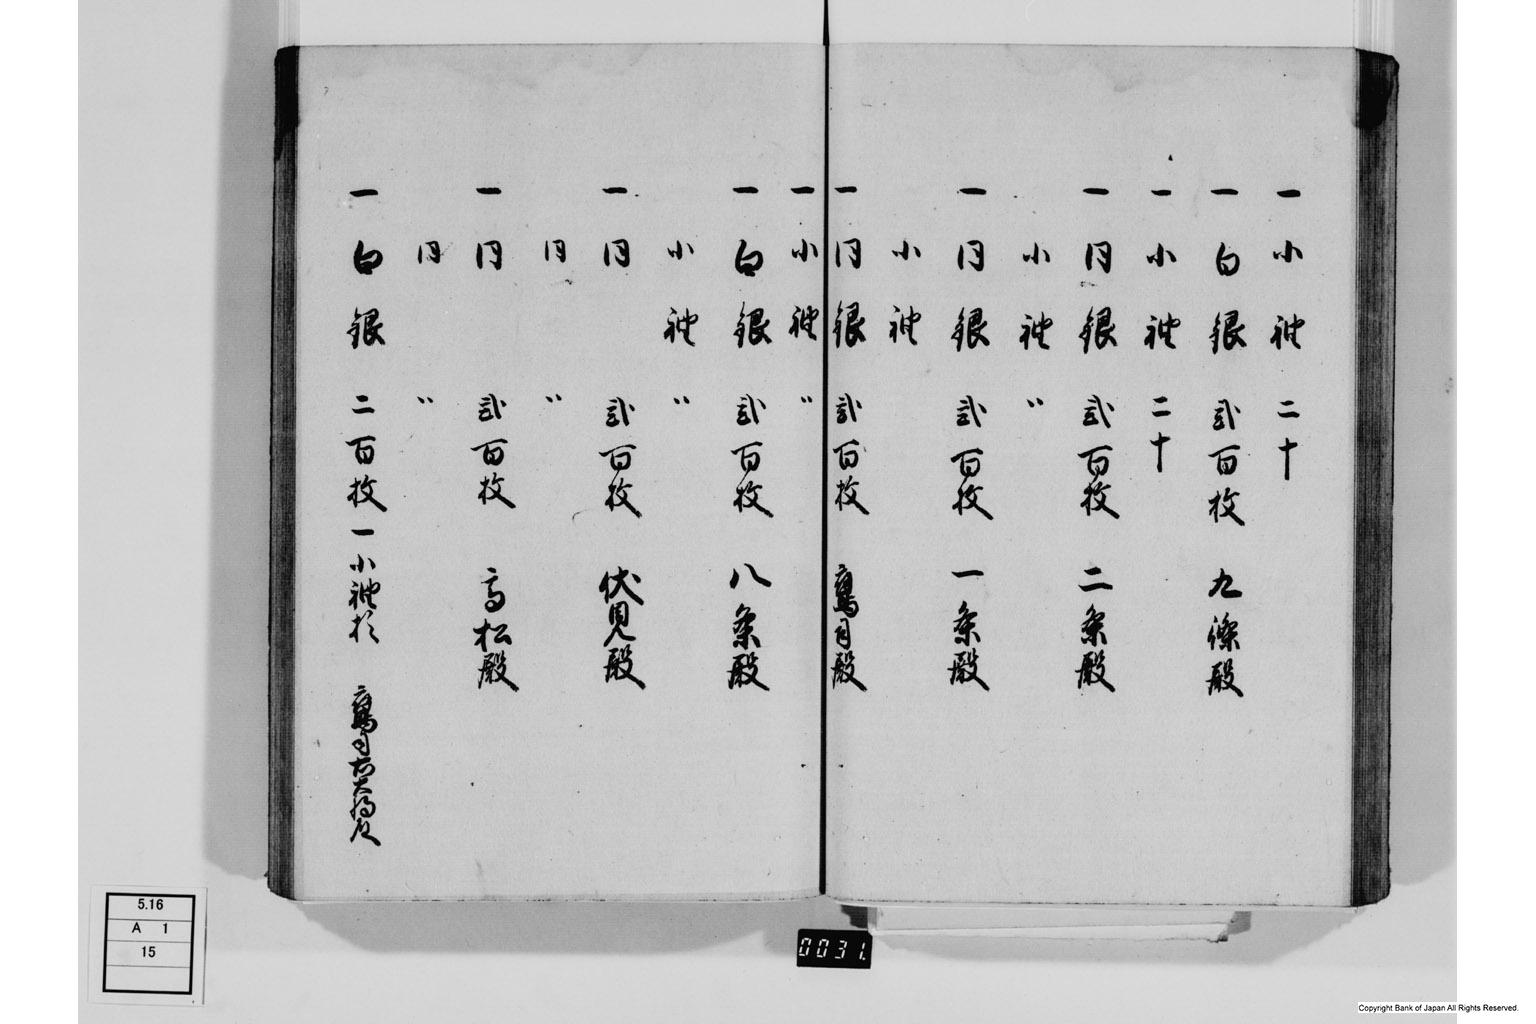 一 小袖 二十
一 白銀 弐百枚 九條殿
一 小袖 二十
一 同銀 弐百枚 二条殿
小袖 〃
一 同銀 弐百枚 一条殿
小袖
一 同銀 弐百枚 鷹司殿
一 小袖 〃
一 白銀 弐百枚 八条殿
小袖 〃
一 同 弐百枚 伏見殿
同 〃
一 同 弐百枚 高松殿
同 〃
一 白銀 二百枚 一小袖 鷹司右大将殿
5.16
A 1
15
0031.
Copyright Bank of Japan All Rights Reserved.